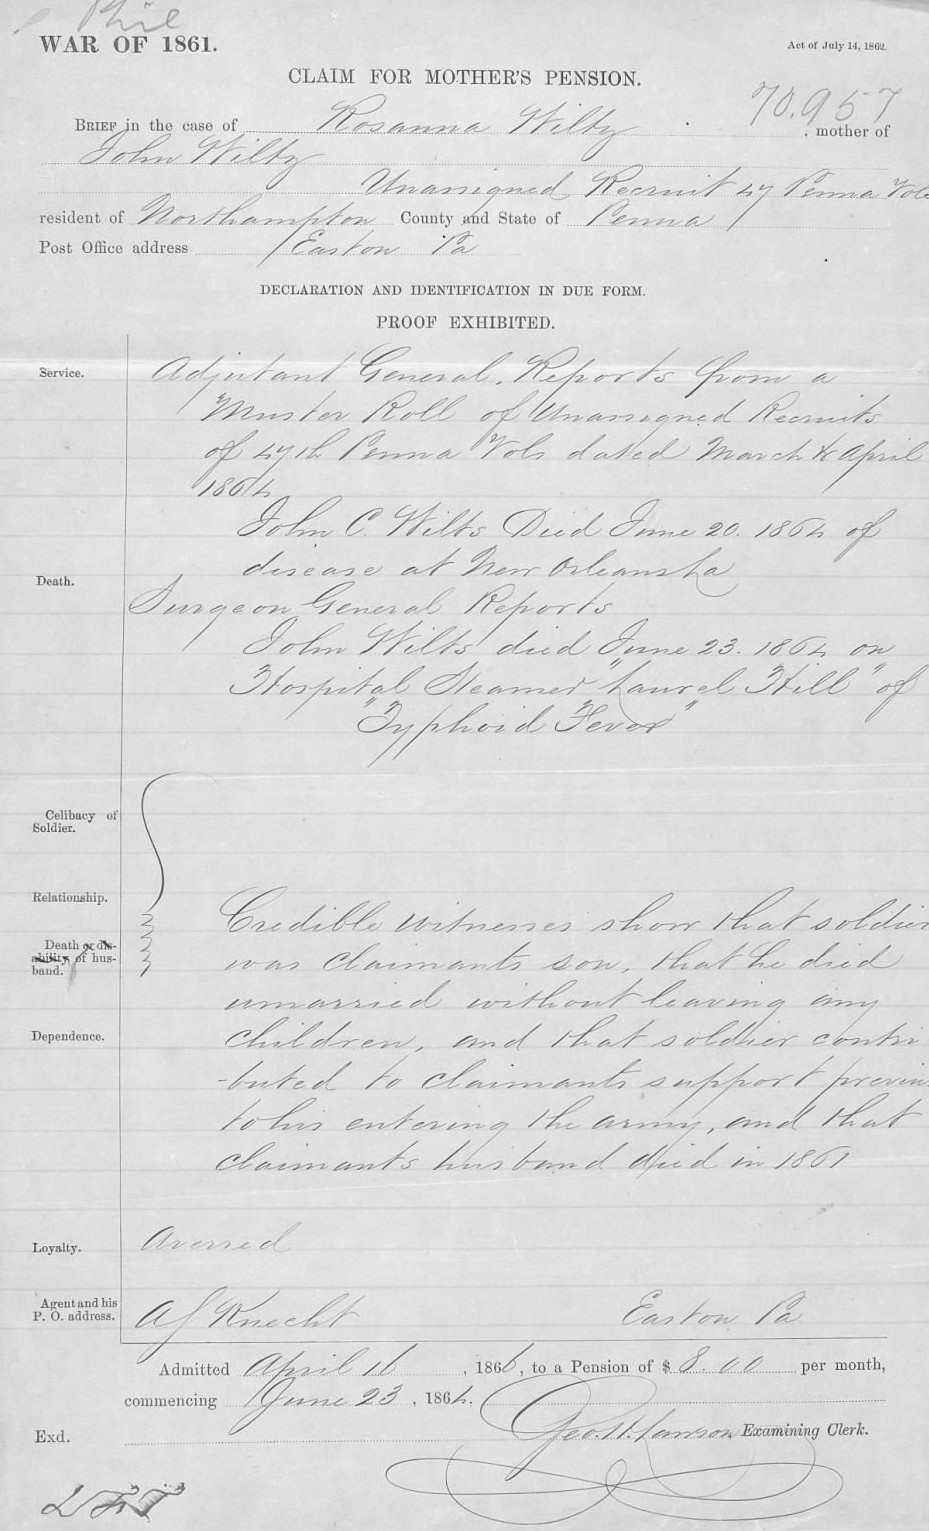 Phil
WAR OF 1861.
Act of July 14, 1862.
CLAIM FOR MOTHER'S PENSION.
70.957
BRIEF in the case of Rosanna Wiltz , mother of
John Wiltz
Unassigned Recruit 47 Penna Vols
resident of Northampton County and State of Penna
Post Office address Easton Pa
DECLARATION AND IDENTIFICATION IN DUE FORM.
PROOF EXHIBITED.
Service. Adjutant General. Reports from a
Muster Roll of Unassigned Recruits
of 47th Penna Vols dated March & April
1864
John C. Wilts Died June 20. 1864 of
disease at New Orleans La
Death. Surgeon General Reports
John Wilts died June 23. 1864 on
Hospital Steamer "Laurel Hill" of
"Typhoid Fever"
Celibacy of
Soldier.
Relationship.
Credible witnesses show that soldier
Death or dis-
ability of hus-
band.
was claimants son, that he died
unmarried without leaving any
Dependence. children, and that soldier contri
-buted to claimants support previo
to his entering the army, and that
claimants husband died in 1861
Loyalty. Averred
Agent and his
P. O. address. A J Knecht Easton Pa
Admitted April 16 , 1866, to a Pension of $ 8.00 per month,
commencing June 23 , 1864.
Exd. Geo. H. Lawson Examining Clerk.